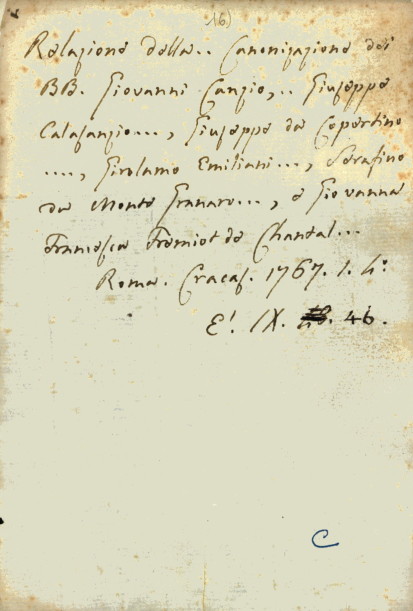 16)
Relazione della.. Canonizazione dei
BB. Giovanni Canzio,.. Giuseppe
Calasanzio..., Giuseppe da Copertino
...., Girolamo Emiliani..., Serafino
da Monte Granaro..., e Giovanna
Francesca Fremiot de Chantal...
Roma. Cracas. 1767. 1. 4°
E'. IX. 46.
C